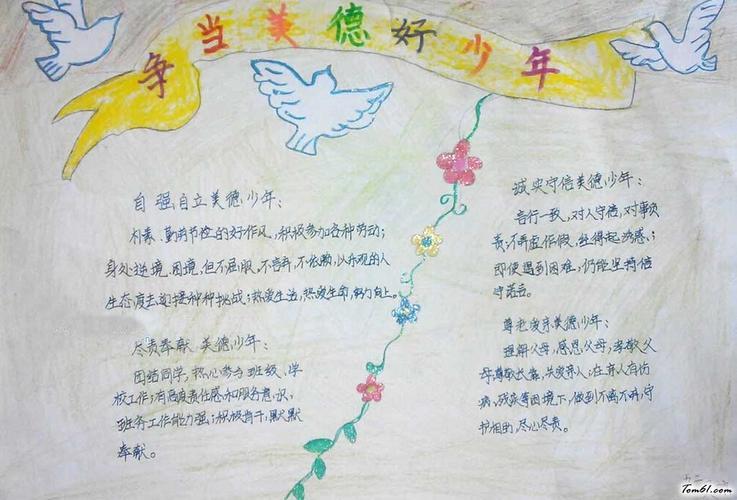 争当美德好少年
自强自立美德少年：
朴素、勤劳节俭的好作风，积极参加各种劳动；
身处逆境、困境，但不屈服，不言弃，不依赖，以乐观的人
生态度去迎接种种挑战；热爱生活，热爱生命，努力向上。
尽责奉献美德少年：
团结同学，热心参与班级、学
校工作；有高度责任感和服务意识，
班务工作能力强；积极肯干，默默
奉献。
诚实守信美德少年：
言行一致，对人守信，对事负
责，不弄虚作假，经得起诱惑，；
即使遇到困难，仍能坚持信
守诺言。
尊老爱亲美德少年：
理解父母，感恩父母，孝敬父
母，尊敬长辈，关爱亲人；在亲人有伤
病、残疾等困境下，做到不离不弃，守
护相助，尽心尽责。
Tom61.com